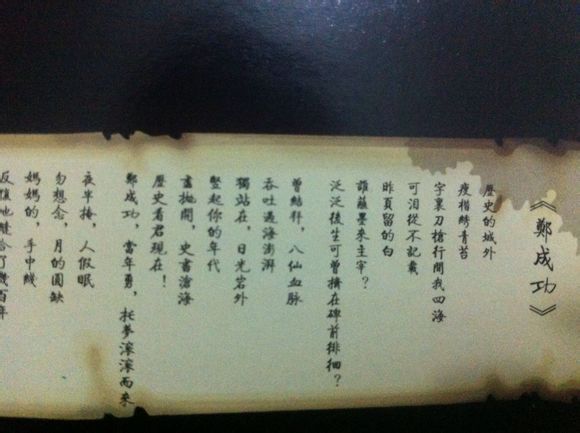 《鄭成功》
歷史的城外
瘦指綉青苔
字裏刀槍行間我四海
可泪從不記載
昨頁留的白
誰蘸墨來主宰？
泛泛後生可曾擠在碑前徘徊？
曾結拜，八仙血脉
吞吐過海澎湃
獨站在，日光岩外
豎起你的年代
盡拋開，史書滄海
歷史看君現在！
鄭成功，當年勇，托夢滾滾而來
夜半掩，人假眠
勿想念，月的圓缺
媽媽的，手中綫
地縫給了幾百年